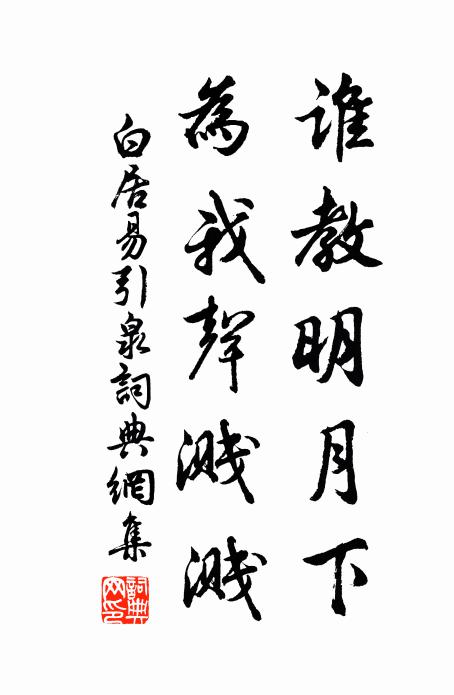 誰教明月下
為我聲濺濺
白居易引泉詞典網集
詞典網印